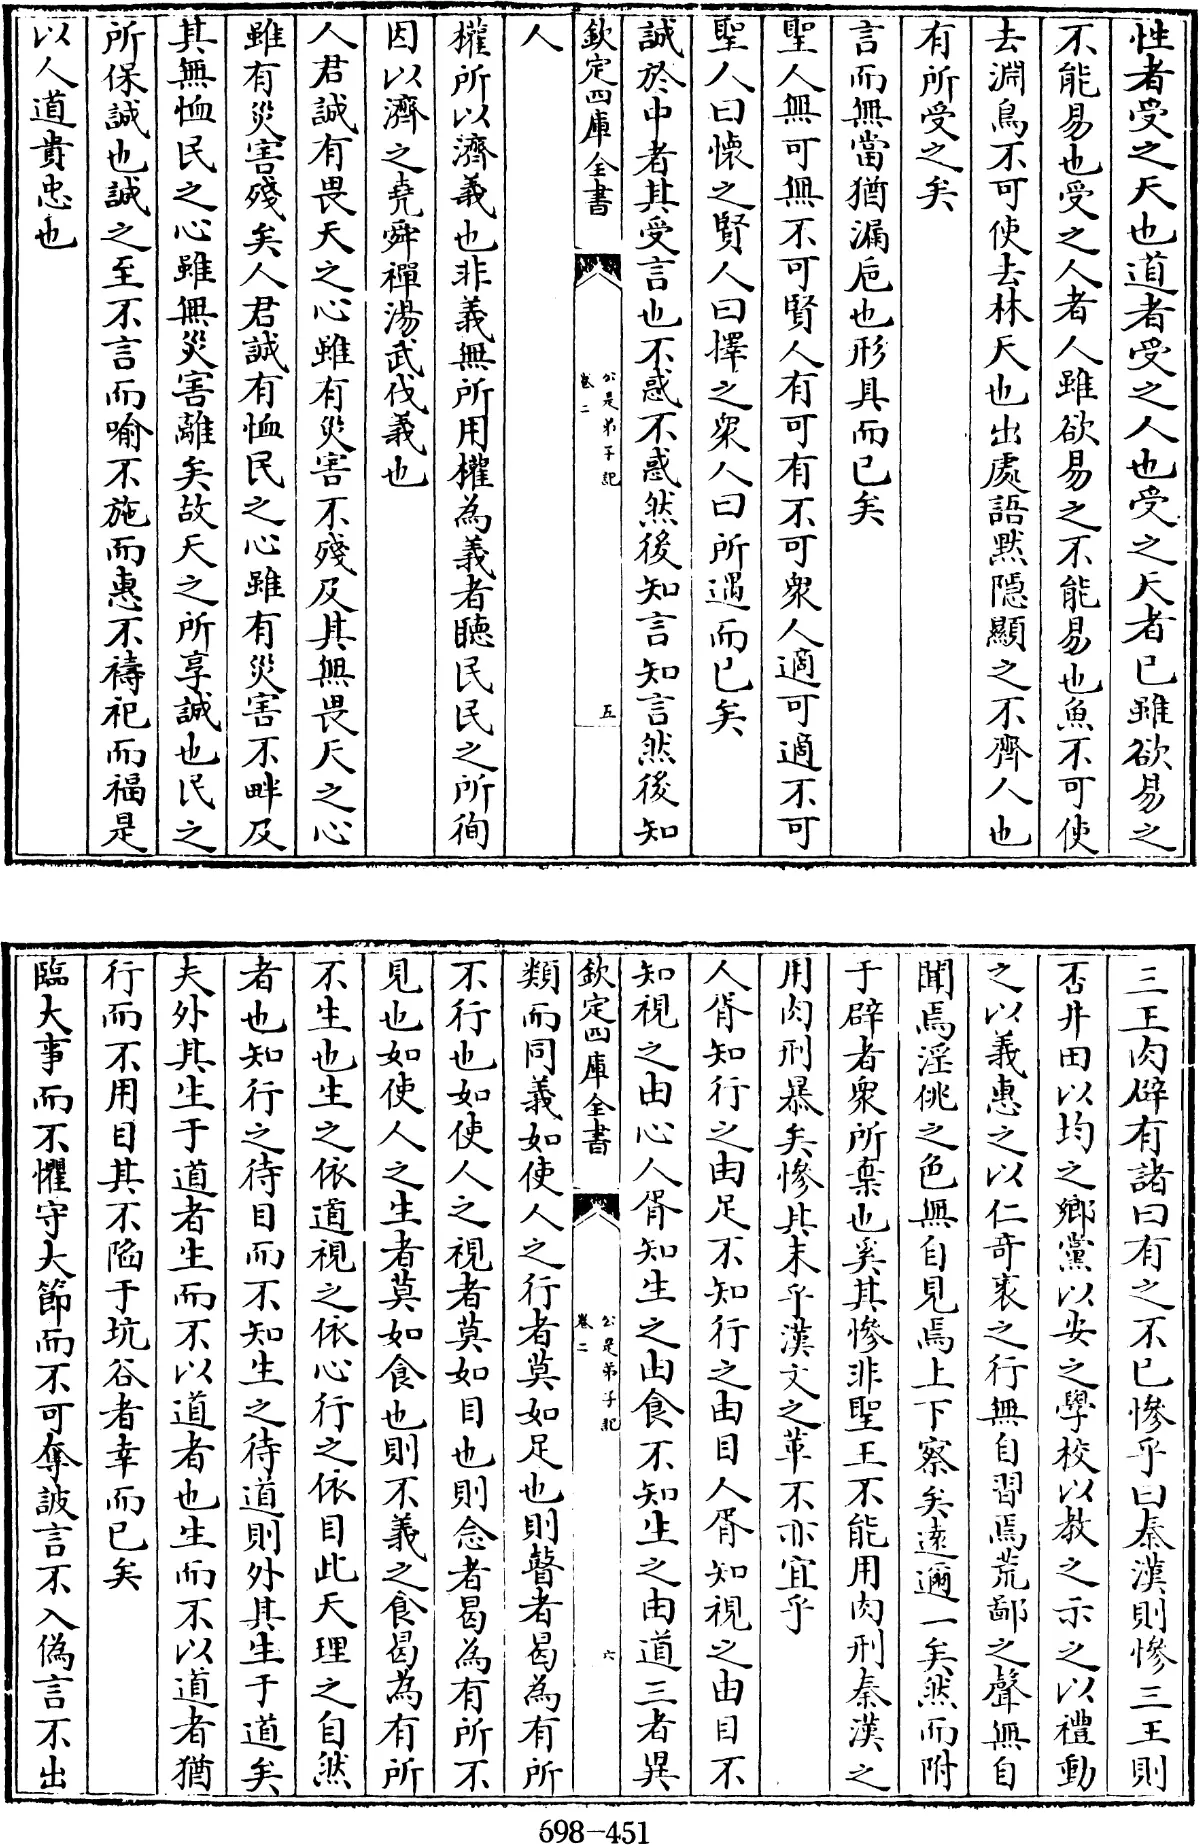 性者受之天也道者受之人也受之天者已雖欲易之
不能易也受之人者人雖欲易之不能易也魚不可使
去淵鳥不可使去林天也出處語黙隱顯之不齊人也
有所受之矣
言而無當猶漏巵也形具而已矣
聖人無可無不可賢人有可有不可衆人適可適不可
聖人曰懐之賢人曰擇之衆人曰所遇而已矣
誠於中者其受言也不惑不惑然後知言知言然後知
欽定四庫全書
公是弟子記
卷二
五
人
權所以濟義也非義無所用權為義者聴民民之所徇
因以濟之堯舜禪湯武伐義也
人君誠有畏天之心雖有災害不殘及其無畏天之心
雖有災害殘矣人君誠有恤民之心雖有災害不畔及
其無恤民之心雖無災害離矣故天之所享誠也民之
所保誠也誠之至不言而喻不施而惠不禱祀而福是
以人道貴忠也
三王肉辟有諸曰有之不已慘乎曰秦漢則慘三王則
否井田以均之鄉黨以安之學校以教之示之以禮動
之以義惠之以仁奇衺之行無自習焉荒鄙之聲無自
聞焉淫佻之色無自見焉上下察矣逺邇一矣然而附
于辟者衆所棄也奚其慘非聖王不能用肉刑秦漢之
用肉刑暴矣慘其末乎漢文之革不亦宜乎
人胥知行之由足不知行之由目人胥知視之由目不
知視之由心人胥知生之由食不知生之由道三者異
欽定四庫全書
公是弟子記
卷二
六
類而同義如使人之行者莫如足也則瞽者曷為有所
不行也如使人之視者莫如目也則念者曷為有所不
見也如使人之生者莫如食也則不義之食曷為有所
不生也生之依道視之依心行之依目此天理之自然
者也知行之待目而不知生之待道則外其生于道矣
夫外其生于道者生而不以道者也生而不以道者猶
行而不用目其不陷于坑谷者幸而已矣
臨大事而不懼守大節而不可奪詖言不入偽言不出
698-451